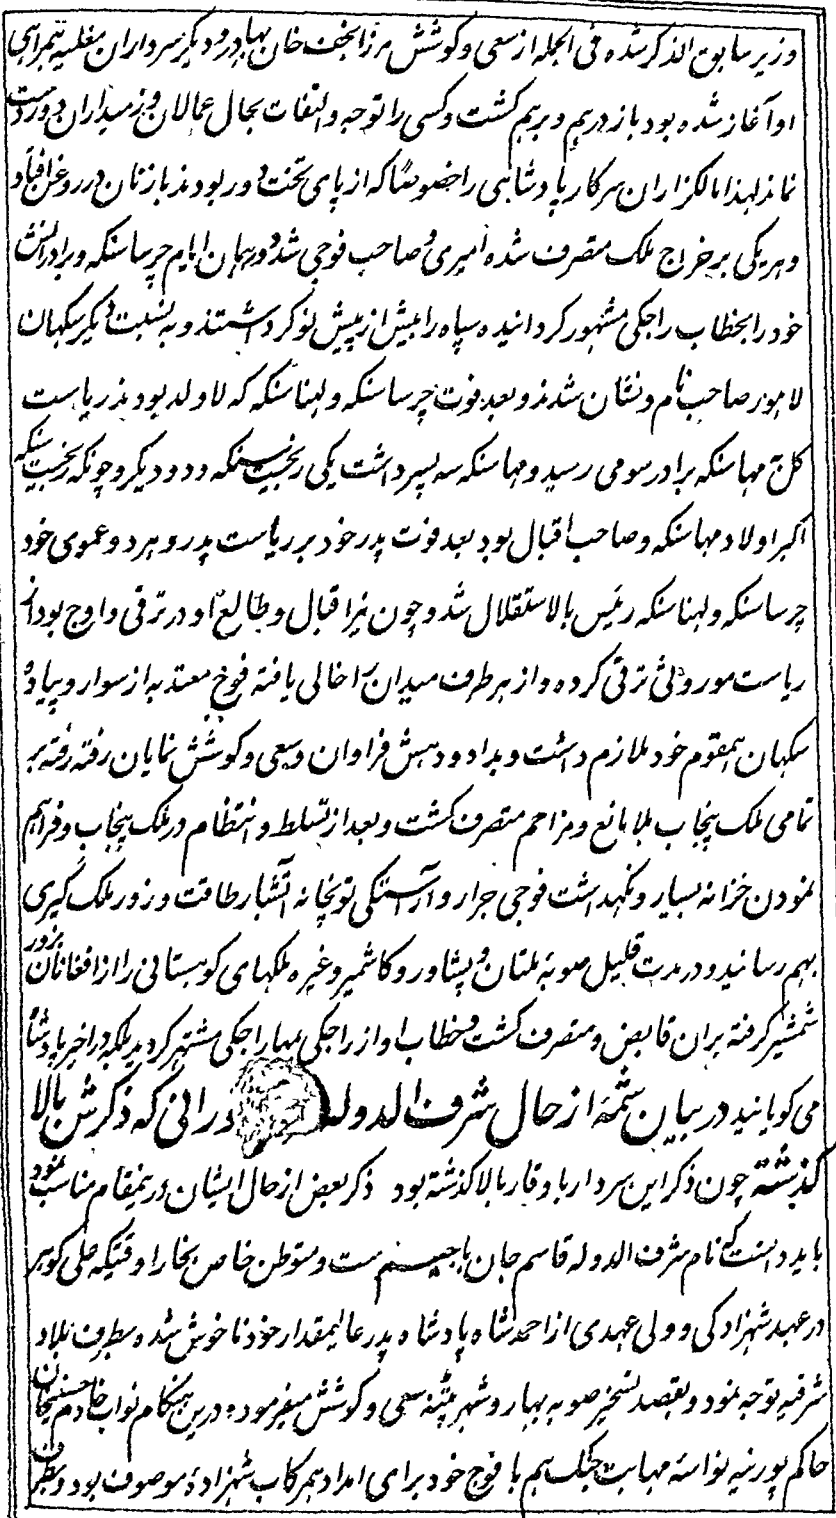 وزیر سابق الذکر شده فی الجمله از سعی و کوشش مرزا نجف خان بهادر و دیگر سرداران مغلیه همراهی
او آغاز شده بود باز درهم و برهم گشت و کسی را توجه و التفات بحال عمالان و زمیداران دوردست
نماند لهذا مالگزاران سرکار پادشاهی را خصوصًا که از پای تخت دور بودند باز نان در روغن افتاد
و هر یکی بر خراج ملک متصرف شده امیری و صاحب فوجی شد در همان ایام چرسا سنگه و برادرانش
خود را بخطاب راجگی مشهور گردانیده سپاه را بیش از پیش نوکر داشتند و به نسبت دیگر سکهان
لاهور صاحب نام و نشان شدند و بعد فوت چرسا سنگه و لهنا سنگه که لاولد بودند ریاست
کل به مها سنگه برادر سومی رسید و مها سنگه سه پسر داشت یکی رنجیت سنگه و دو دیگر و چونکه رنجیت سنگه
اکبر اولاد مها سنگه و صاحب اقبال بود بعد فوت پدر خود بر ریاست پدر و هر دو عموی خود
چرسا سنگه و لهنا سنگه رئیس بالاستقلال شد و چون نیر اقبال و طالع او در ترقی و اوج بود از
ریاست موروثی ترقی کرده و از هر طرف میدان را خالی یافته فوج معتدبه از سوار و پیاده
سکهان همقوم خود ملازم داشت و بداد و دهش فراوان و سعی و کوشش نمایان رفته رفته بر
تمامی ملک پنجاب بلا مانع و مزاحم متصرف گشت و بعد از تسلط و انتظام در ملک پنجاب و فراهم
نمودن خزانه بسیار و نگهداشت فوجی جرار و آراستگی توپخانه آتشبار طاقت و زور ملک گیری
بهم رسانید و در مدت قلیل صوبه ملتان و پشاور و کاشمیر و غیره ملکهای کوهستانی را از افغانان بزور
شمشیر گرفته بران قابض و متصرف گشت و خطاب او از راجگی بمهاراجگی مشتهر گردید بلکه در اخیر پادشاه
می گویانید در بیان شمهٔ از حال شرف الدوله درانی که ذکرش بالا
گذشته چون ذکر این سردار باوقار بالا گذشته بود ذکر بعض از حال ایشان درینمقام مناسب نمود
باید دانست که نام شرف الدوله قاسم جان با جیم ست و متوطن خاص بخارا وقتیکه علی گوهر
در عهد شهزادگی و ولی عهدی از احمد شاه پادشاه پدر عالیمقدار خود ناخوش شده بطرف بلاد
شرقیه توجه نمود و بقصد تسخیر صوبه بهار و شهر پتنه سعی و کوشش میفرمود درین هنگام نواب خادم حسینخان
حاکم پورنیه نواسهٔ مهابت جنگ هم با فوج خود برای امداد همرکاب شهزادهٔ موصوف بود و بطرف